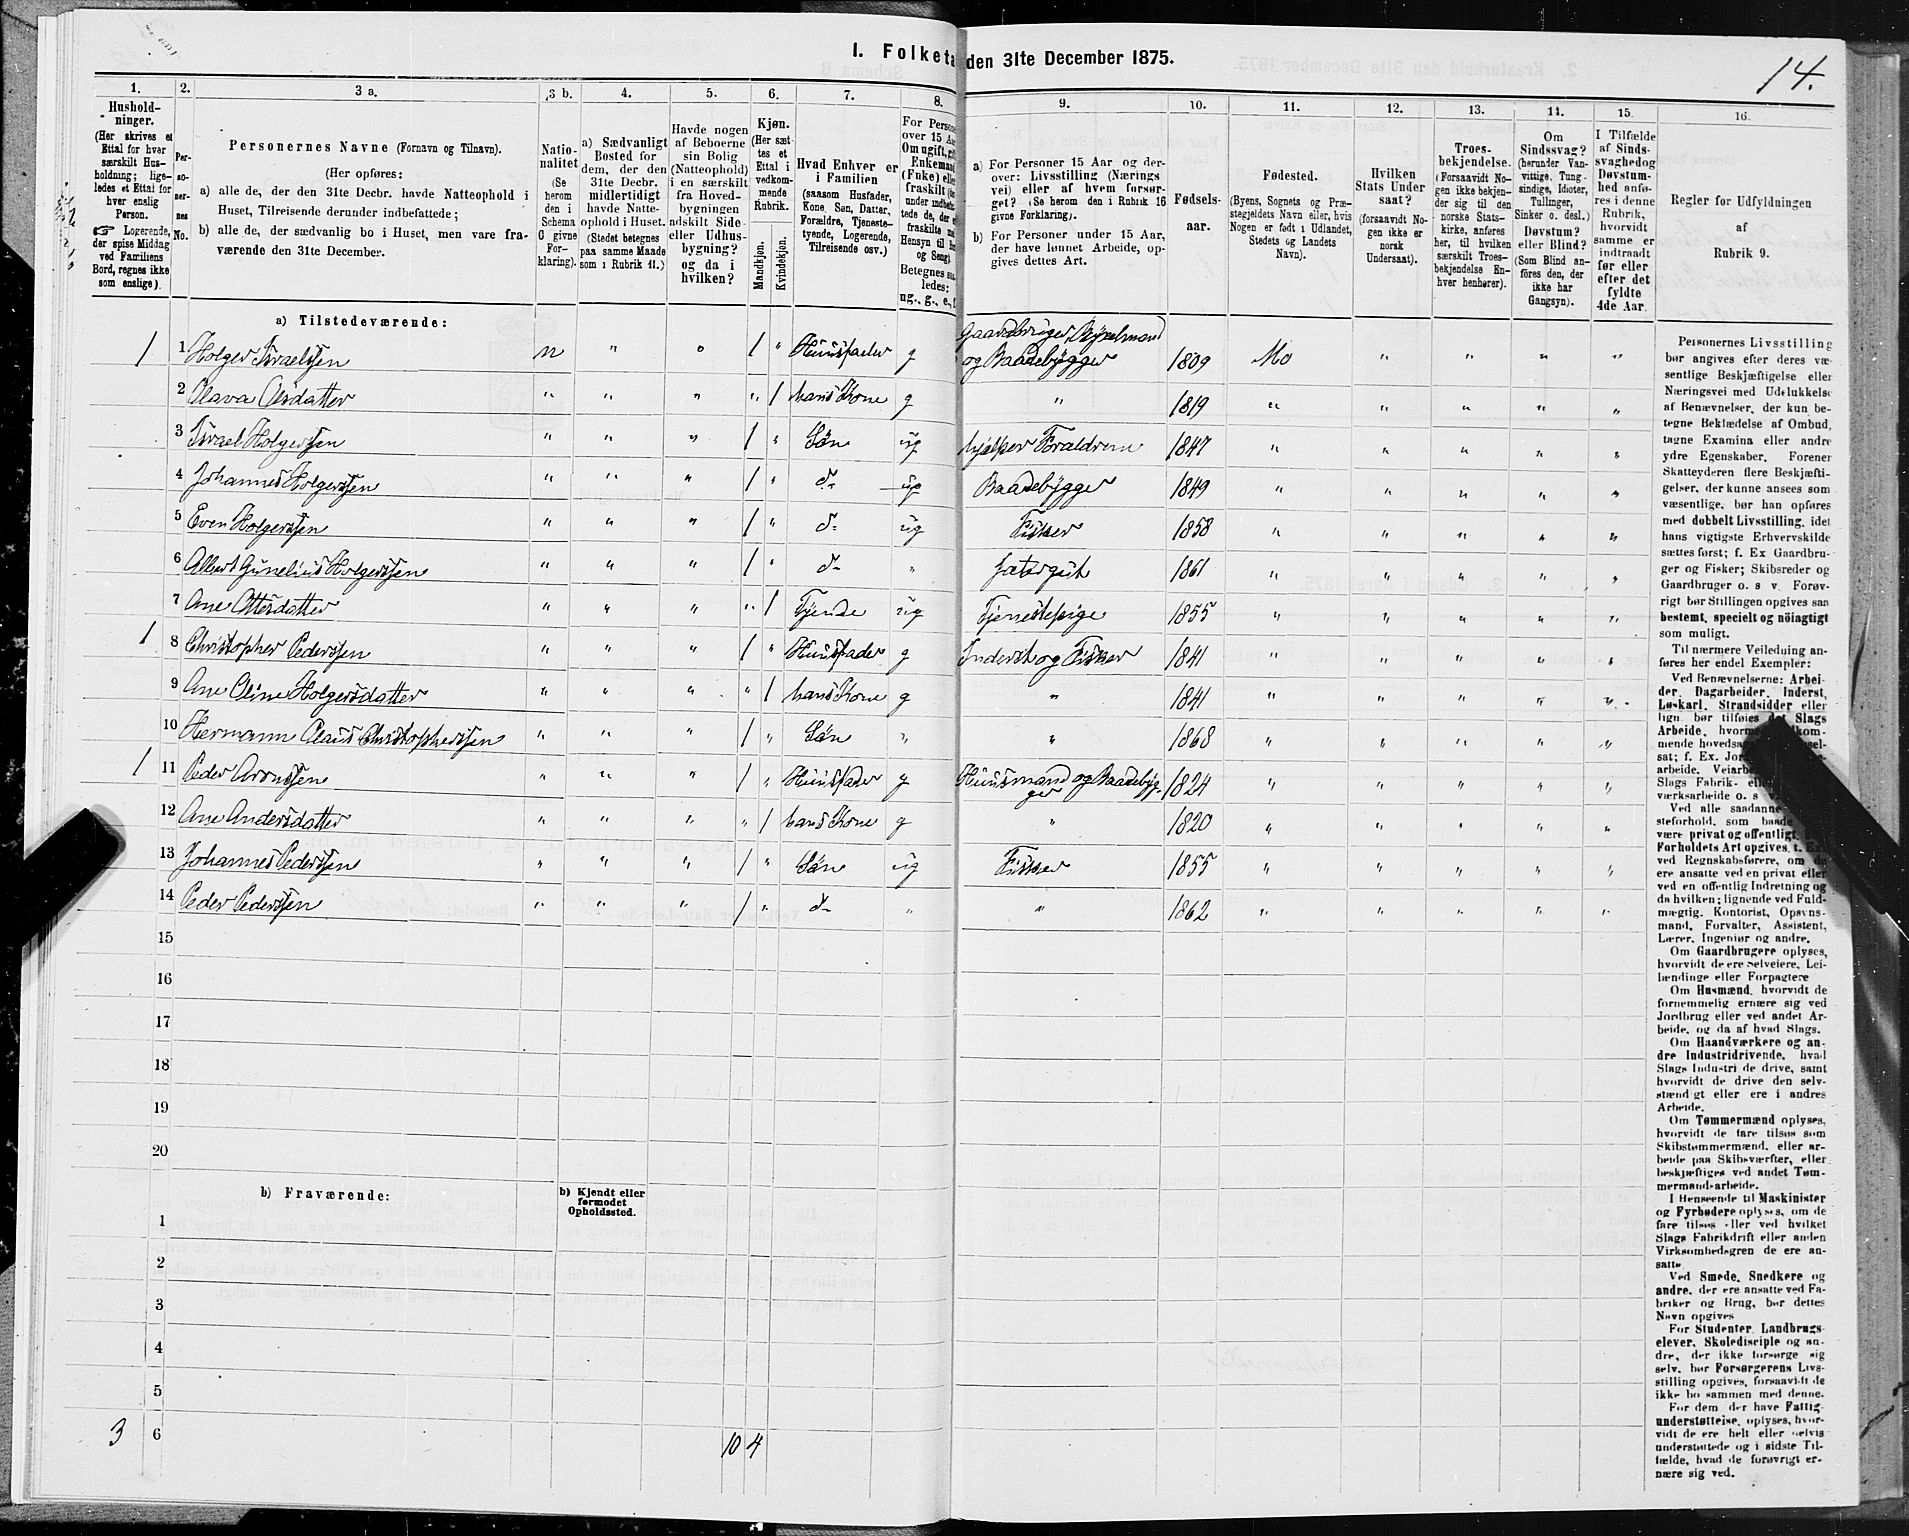 I. Folketa den 31te December 1875.
14.
1. 2. 3 a. 3 b. 4. 5. 6. 7. 8. 9. 10. 11. 12. 13. 14. 15. 16.
Hushold-
ninger.
(Her skrives et
Ettal for hver
særskilt Hus-
holdning; lige-
ledes et Ettal for
hver enslig
Person.
☞ Logerende,
der spise Middag
ved Familiens
Bord, regnes ikke
som enslige).
Per-
so-
ner-
nes
No.
Personernes Navne (Fornavn og Tilnavn).
(Her opføres:
a) alle de, der den 31te Decbr. havde Natteophold i
Huset, Tilreisende derunder indbefattede;
b) alle de, der sædvanlig bo i Huset, men vare fra-
værende den 31te December.
Natio-
nalitet
(Se
herom
den i
Schema
C givne
For-
klaring).
a) Sædvanligt
Bosted for
dem, der den
31te Decbr.
midlertidigt
havde Natte-
ophold i Huset.
(Stedet betegnes
paa samme Maade
som i Rubrik 11.)
Havde nogen
af Beboerne
sin Bolig
(Natteophold)
i en særskilt
fra Hoved-
bygningen
adskilt Side-
eller Udhus-
bygning?
og da i
hvilken?
Kjøn.
(Her sæt-
tes et
Ettal i
vedkom-
mende
Rubrik.
Mandkjøn.
Kvindekjøn.
Hvad Enhver er
i Familien
(saasom Husfader,
Kone, Søn, Datter,
Forældre, Tjeneste-
tyende, Logerende,
Tilreisende osv.)
For Persone
over 15 Aa
Om ugift, gif
Enkemand
(Enke) elle
fraskilt
Betegnes saa-
ledes:
ug., g., e., f.
a) For Personer 15 Aar og der-
over: Livsstilling (Nærings
vei) eller af hvem forsør-
get? (Se herom den i Rubrik 16
givne Forklaring).
b) For Personer under 15 Aar,
der have lønnet Arbeide, op-
gives dettes Art.
Fødsels-
aar.
Fødested.
(Byens, Sognets og Præ-
stegjeldets Navn eller, hvis
Nogen er født i Udlandet,
Stedets og Landets
Navn).
Hvilken
Stats Under
saat?
(forsaavidt No-
gen ikke er
norsk
Undersaat).
Troes-
bekjendelse.
(Forsaavidt No-
gen ikke bekjen-
der sig til den
norske Stats-
kirke, anføres
her, til hvilken
særskilt Troes-
bekjendelse En-
hver henhører).
Om
Sindssvag?
(herunder Van-
vittige, Tung-
sindige, Idioter,
Tullinger,
Sinker o. desl.)
Døvstum?
eller Blind?
(Som Blind an-
føres den, der
ikke har
Gangsyn).
I Tilfælde
af Sinds-
svaghed og
Døvstum-
hed anfø-
res i denne
Rubrik,
hvorvidt
samme er
indtraadt
før eller
efter det
fyldte
4de Aar.
Regler for Udfyldningen
af
Rubrik 9.
a) Tilstedeværende:
1 1 Holger Israelsen n " " 1 " Huusfader g Gaardbruger, Selveiermand
og Baadebygger 1809 Mo " " " "
2 Olava Olsdatter " " " " 1 hans Kone g " 1819 " " " " "
3 Israel Holgersen " " " 1 " Søn ug hjælper Forældrene 1847 " " " " "
4 Johannes Holgersen " " " 1 " d- ug Baadebygger 1849 " " " " "
5 Even Holgersen " " " 1 " d- ug Fisker 1858 " " " " "
6 Albert Gunelius Holgersen " " " 1 " d- " Jætergut 1861 " " " " "
7 Ane Ottesdatter " " " " 1 Tjende ug Tjenestepige 1855 " " " " "
1 8 Christopher Pedersen " " " 1 " Huusfader g Inderst og Fisker 1841 " " " " "
9 Ane Oline Holgersdatter " " " " 1 hans Kone g " 1841 " " " " "
10 Hermann Olaus Christophersen " " " 1 " Søn " " 1868 " " " " "
1 11 Peder Arontsen " " " 1 " Huusfader g Huusmand og Baadebyg-
ger 1824 " " " " "
12 Ane Andersdatter " " " " 1 hans Kone g " 1820 " " " " "
13 Johannes Pedersen " " " 1 " Søn ug Fisker 1855 " " " " "
14 Peder Pedersen " " " 1 " d- " " 1862 " " " " "
15
16
17
18
19
20
b) Fraværende: b) Kjendt eller
formodet
Opholdssted.
1
2
3
4
5
3 6 10 4
Personernes Livsstilling
bør angives efter deres væ-
sentlige Beskjæftigelse eller
Næringsvei med Udelukkelse
af Benævnelser, der kun be-
tegne Beklædelse af Ombud,
tagne Examina eller andre
ydre Egenskaber. Forener
Skatteyderen flere Beskjæfti-
gelser, der kunne ansees som
væsentlige, bør han opføres
med dobbelt Livsstilling, idet
hans vigtigste Erhvervskilde
sættes først; f. Ex Gaardbru-
ger og Fisker; Skibsreder og
Gaardbruger o. s v. Forøv-
rigt bør Stillingen opgives saa
bestemt, specielt og nöiagtigt
som muligt.
Til nærmere Veiledning an-
føres her endel Exempler:
Ved Benævnelserne: Arbei-
der, Dagarbeider, Inderst,
Løskarl, Strandsidder eller
lign. bør tilføies det Slags
Arbeide,
arbeide.
Slags Fabrik-
værksarbeide o. s v.
Ved alle saadanne
steforhold, som baade
være privat og offentligt,
Forholdets Art opgives, t. Ex
ved Regnskabsførere, om de
ere ansatte ved en privat eller
ved en offentlig Indretning og
da hvilken; lignende ved Fuld-
mægtig, Kontorist, Opsyns-
mand, Forvalter, Assistent,
Lærer, Ingeniør og andre.
Om Gaardbrugere oplyses,
hvorvidt de ere Selveiere, Lei-
lændinge eller Forpagtere
Om Husmænd, hvorvidt de
fornemmelig ernære sig ved
Jordbrug eller ved andet Ar-
beide, og da af hvad Slags.
Om Haandværkere og an-
dre Industridrivende, hvad
Slags Industri de drive, samt
hvorvidt de drive den selv-
stændigt eller ere i andres
Arbeide.
Om Tømmermænd oplyses,
hvorvidt de fare tilsøs som
Skibstømmermænd, eller ar-
beide paa Skibsværfter, eller
beskjæftiges ved andet Tøm-
mermandsarbeide.
I Henseende til Maskinister
og Fyrbødere oplyses, om de
fare tilsøs eller ved hvilket
Slags Fabrikdrift eller anden
Virksomhedsgren de ere an-
satte.
Ved Smede, Snedkere og
andre, der ere ansatte ved Fa-
briker og Brug, bør dettes
Navn opgives
For Studenter, Landbrugs-
elever, Skoledisciple og an-
dre, der ikke forsørge sig
selv, bør Forsørgerens Livs-
stilling opgives, forsaavidt de
ikke bo sammen med denne.
For dem, der have Fattig-
understøttelse, oplyses, hvor-
vidt de ere helt eller delvis
understøttede og i sidste Til-
fælde, hvad de forøvrigt er-
nære sig ved.